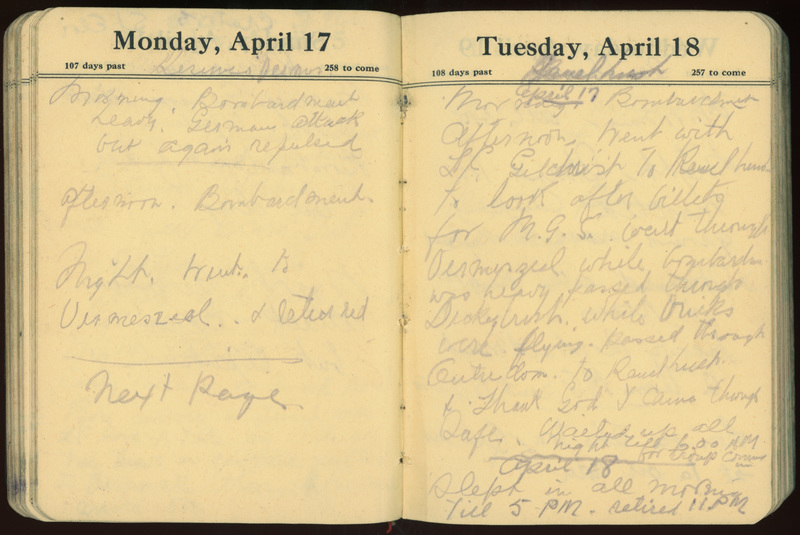 Monday, April 17
107 days past 258 to come
Morning. Bombardment
heavy. German attack
but again repulsed
afternoon. Bombardment.
Night. Went to
Viermeszeal.. & retired
Next Page
Tuesday, April 18
108 days past 257 to come
April 17
Morning Bombardment
afternoon, went with
Lt. Gilchrist to
to look after billets
for M.G.S. went through
Viermyzeal while bombardm
was heavy, passed through
Dickybush. while bricks
were flying. passed through
to
& Thank God I came through
Safe. Waited up all
night till 6.00 AM
for troops coming
in
April 18
Slept in all morning
Till 5 PM. retired 11 PM